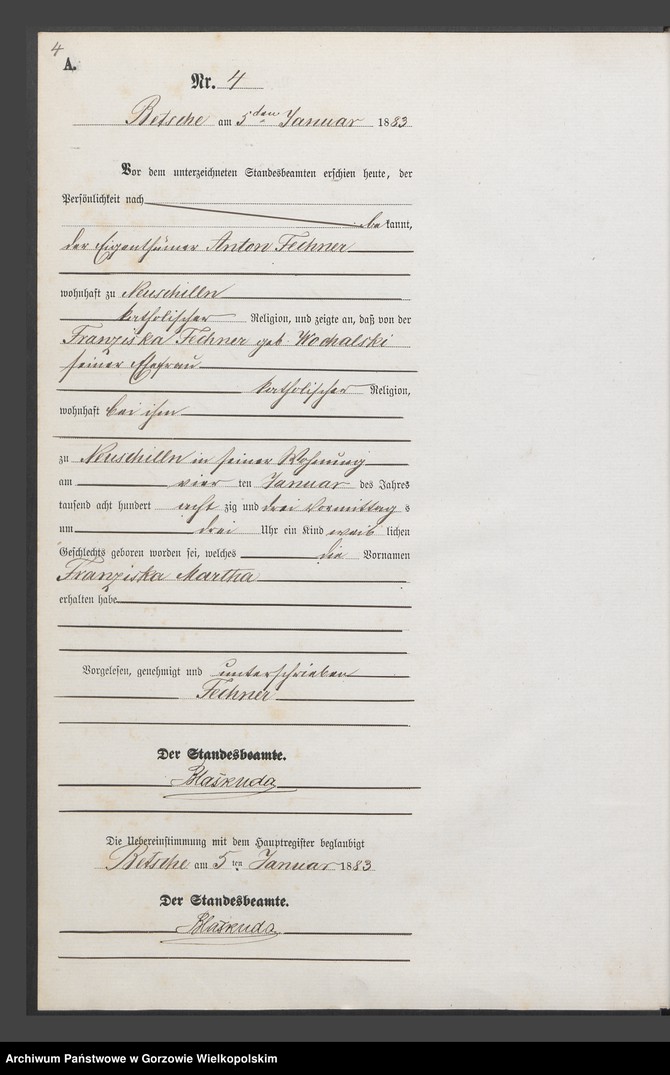 4
A.
Nr. 4
Betsche am 5ten Januar 1883
Vor dem unterzeichneten Standesbeamten erschien heute, der
Persönlichkeit nach
bekannt,
der Eigenthümer Anton Fechner
wohnhaft zu Neuschilln
katholischer Religion, und zeigte an, daß von der
Franziska Fechner geb. Wochalski
seiner Ehefrau
katholischer Religion,
wohnhaft bei ihm
zu Neuschilln in seiner Wohnung
am vier ten Januar des Jahres
tausend acht hundert acht zig und drei Vormittag s
um drei Uhr ein Kind weib lichen
Geschlechts geboren worden sei, welches die Vornamen
Franziska Martha
erhalten habe
Vorgelesen, genehmigt und unterschrieben
Fechner
Der Standesbeamte.
Blaskuda
Die Uebereinstimmung mit dem Hauptregister beglaubigt
Betsche am 5 ten Januar 1883
Der Standesbeamte.
Blaskuda
Archiwum Państwowe w Gorzowie Wielkopolskim